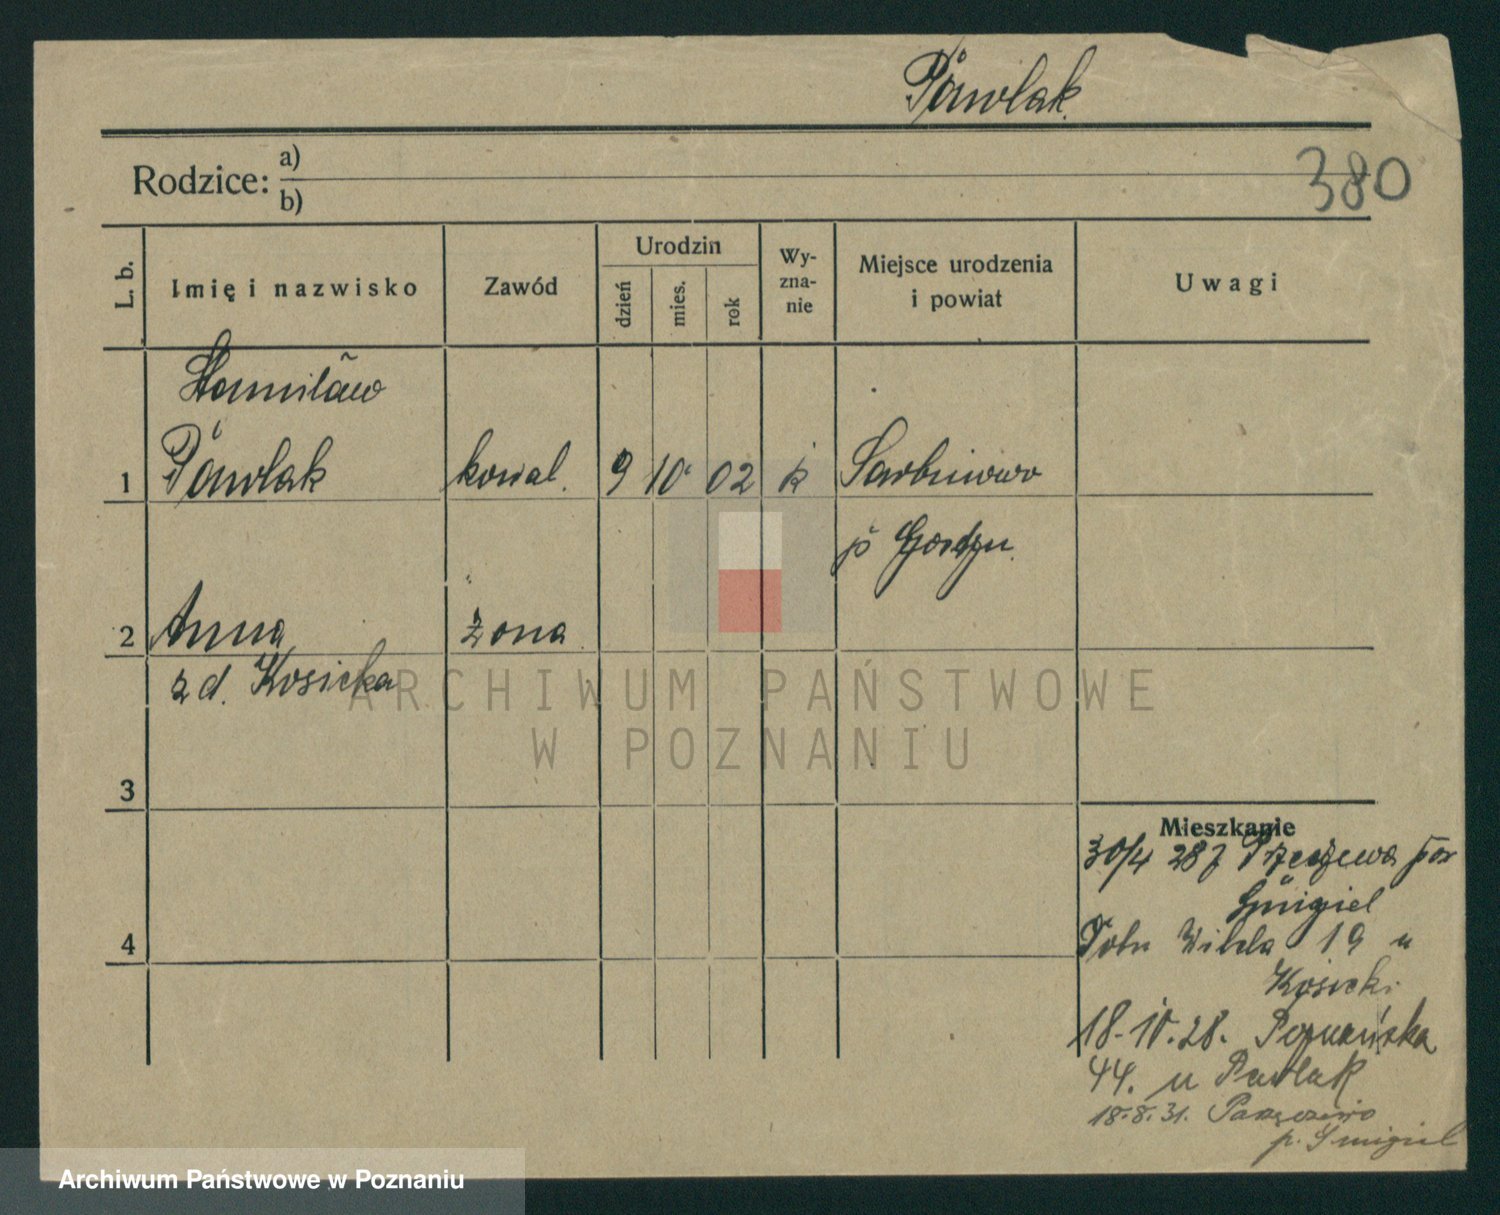 Pawlak.
Rodzice: a)
b)
380
L. b.
Imię i nazwisko
Zawód
Urodzin
dzień
mies.
rok
Wy-
zna-
nie
Miejsce urodzenia
i powiat
Uwagi
Stanisław
1 Pawlak kowal. 9 10 02 k Sarbinowo
p
2 Anna żona
z d. Kosicka
3
4
Mieszkanie
30/4 28 z
Śmigiel
19 u
Kosicki
18-10.28. Poznańska
44. u Pawlak
18.8.31.
p. Śmigiel
ARCHIWUM PAŃSTWOWE
W POZNANIU
Archiwum Państwowe w Poznaniu